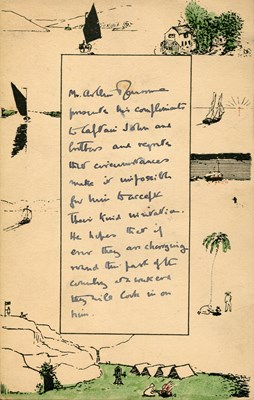 Mr. Arthur Ransome
presents his compliments
to Captain John and
brothers and regrets
that circumstances
make it impossible
for him to accept
their kind invitation.
He hopes that if
ever they are charging
round this part of the
country at a weekend
they will look in on
him.